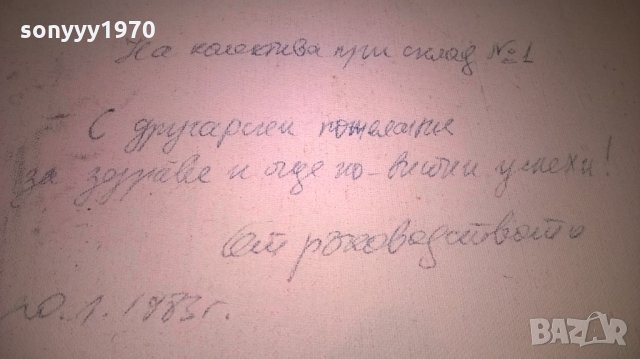 sonyyy1970
На колектива при склад №1
С другарски пожелание
за здраве и още по-високи успехи!
От ръководството
20.1.1983г.
BAZAR